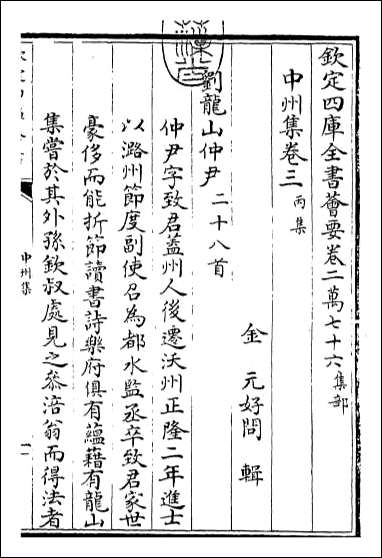 欽定四庫全書薈要卷二萬七十六集部
中州集卷三丙集
金 元好問 輯
劉龍山仲尹二十八首
仲尹字致君葢州人後遷沃州正隆二年進士
以潞州節度副使召為都水監丞卒致君家世
豪侈而能折節讀書詩樂府俱有蘊藉有龍山
集嘗於其外孫欽叔處見之叅涪翁而得法者
中州集
一